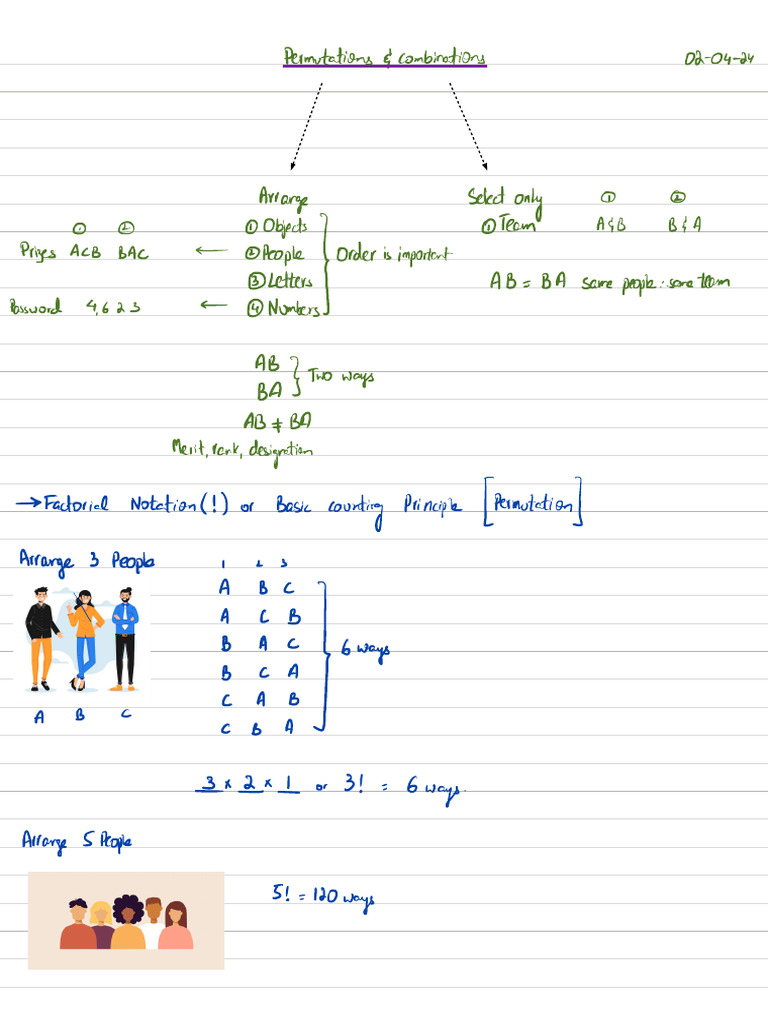 Permutations & combinations 02-04-24
Arrange
① Objects
② People
③ Letters
④ Numbers
Order is important
① ②
Prizes ACB BAC ←
Password 4,6 2 3 ←
Select only ① ②
① Team A & B B & A
AB = BA same people : same team
AB
BA
Two ways
AB ≠ BA
Merit, rank, designation
→ Factorial Notation (!) or Basic counting Principle [Permutation]
Arrange 3 People
A B C
1 2 3
A B C
A C B
B A C
B C A
C A B
C B A
6 ways
3 × 2 × 1 or 3! = 6 ways.
Arrange 5 People
5! = 120 ways